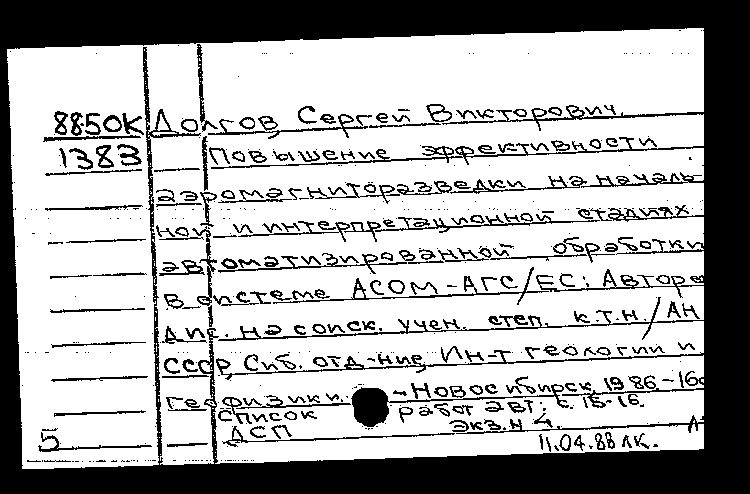 8850К Долгов Сергей Викторович.
1383 Повышение эффективности
аэромагниторазведки на началь
ной и интерпретационной стадиях
автоматизированной обработки
в системе АСОМ-АГС/ЕС: Авторе
дис. на соиск. учен. степ. к.т.н./АН
СССР, Сиб. отд-ние, Ин-т геологии и
геофизики. - Новосибирск, 1986.-16с
Список работ авт: с. 15-16.
ДСП экз. н 4.
5 11.04.88 ЛК.